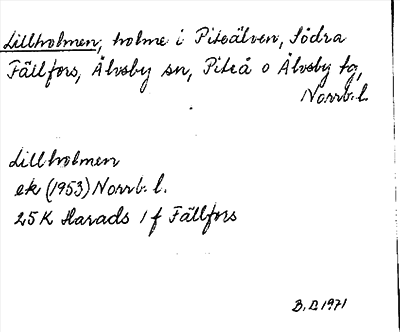 Lillholmen, holme i Piteälven, Södra
Fällfors, Älvsby sn, Piteå o Älvsby tg,
Norrb. l.
Lillholmen
ek (1953) Norrb. l.
25K Harads 1 f Fällfors
B. D. 1971